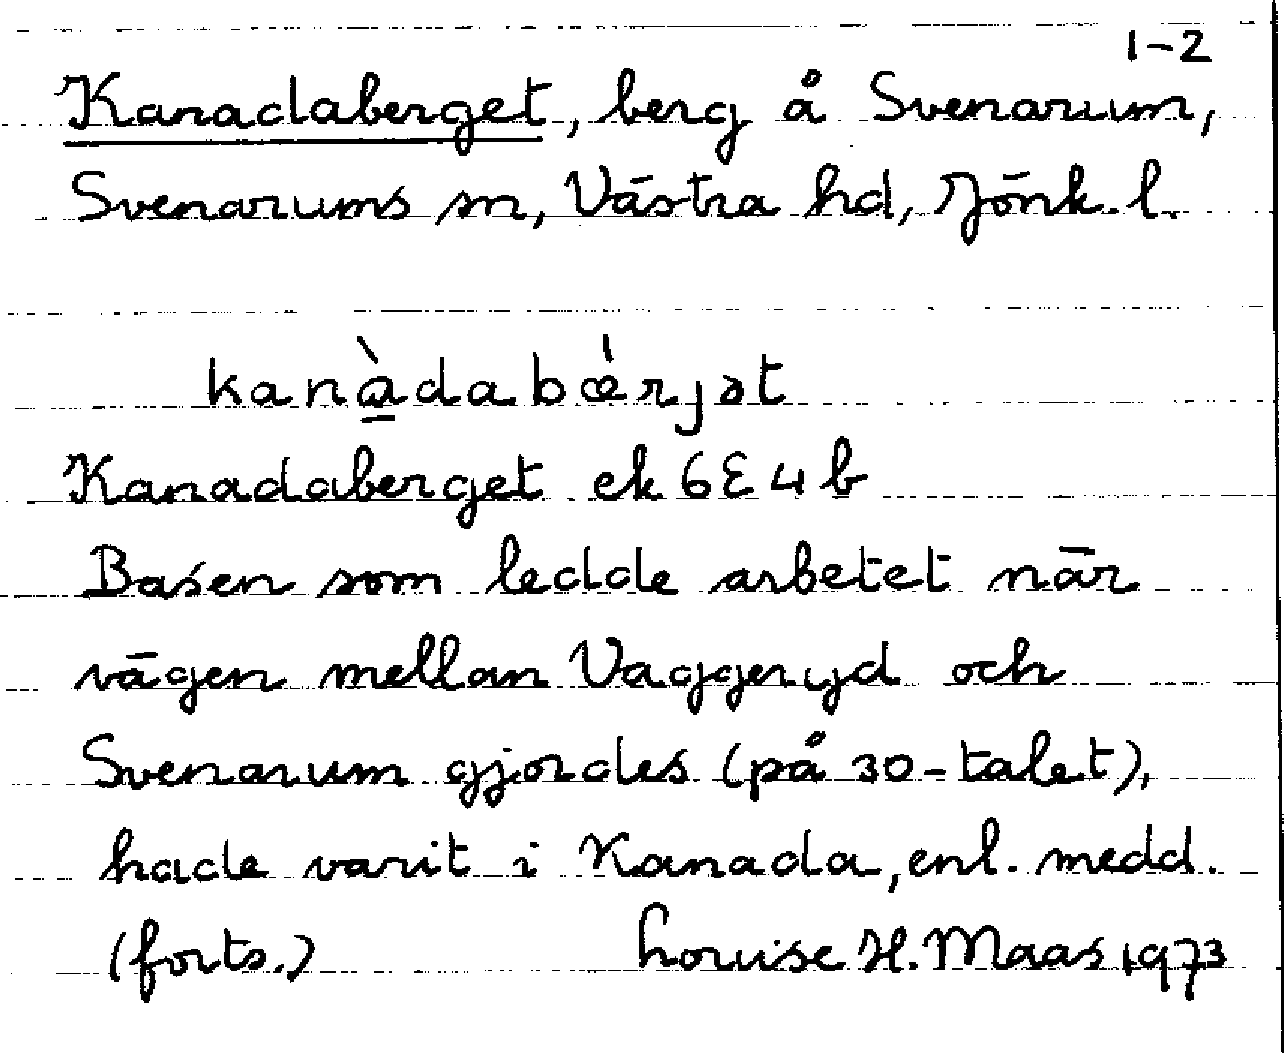 1-2
Kanadaberget, berg å Svenarum,
Svenarums sn, Västra hd, Jönk. l.
kanàdabæ̀rjət
Kanadaberget ek 6E4b
Basen som ledde arbetet när
vägen mellan Vaggeryd och
Svenarum gjordes (på 30-talet),
hade varit i Kanada, enl. medd.
(forts.) Louise H. Maas 1973